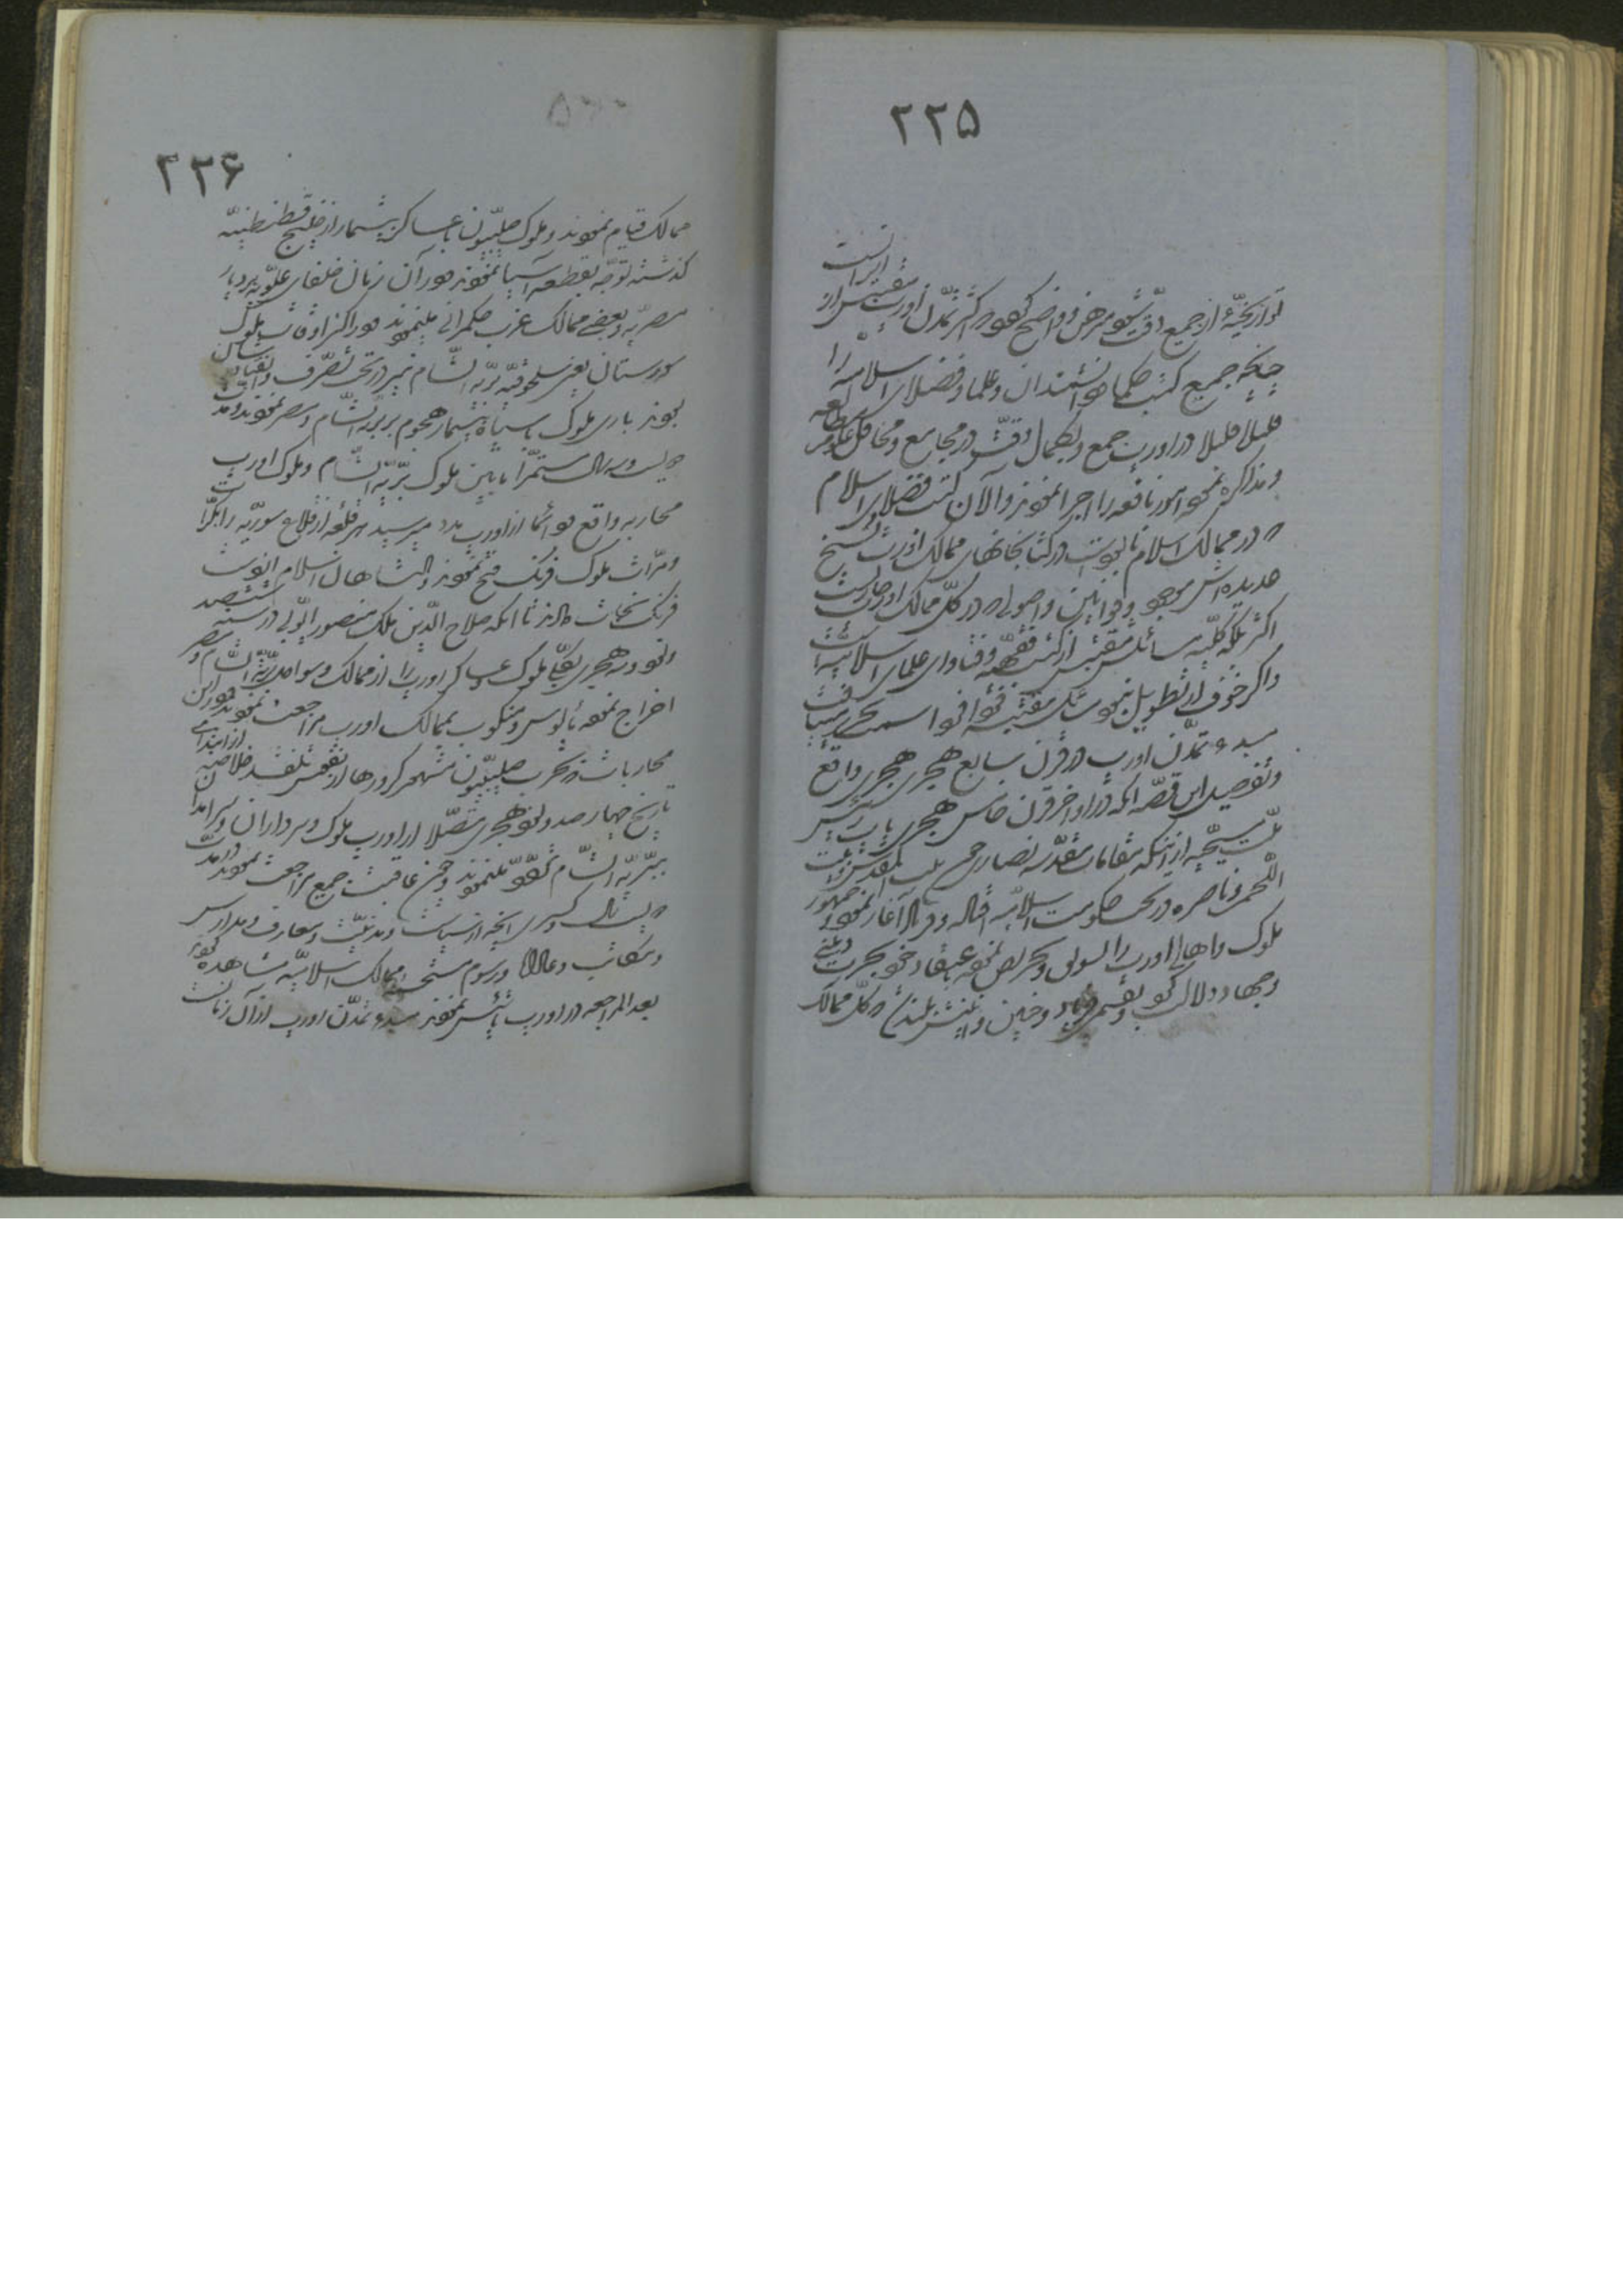 ۲۲۵
تواریخیّهٔ از جمیع دقّت شود مبرهن و واضح گردد که اکثر تمدّن اورپ مقتبس از
اسلام است
چنانکه جمیع کتب حکما و دانشمندان و علما و فضلای اسلامیه را
قلیلا قلیلا در اورپ جمع و بکمال دقّت در مجامع و محافل علوم مطالعه
و مذاکره نموده امور نافعه را اجرا نمودند و الآن کتب فضلای اسلام
که در ممالک اسلام نابود است در کتابخانهای ممالک اورپ نسخ
عدیده‌اش موجود و قوانین و اصولی که در کلّ ممالک اورپ جاریست
اکثر بلکه کلّیّه مسائلش مقتبس از کتب فقهیّه و فتاوای علمای اسلامیّه است
و اگر خوف از تطویل نبود مسائل مقتبسه فردا فردا سمت تحریر می‌یافت
مبدء تمدّن اورپ در قرن سابع هجری هجری واقع
و تفصیل این قصّه آنکه در اواخر قرن خامس هجری پاپ رئیس
ملّت مسیحیّه از اینکه مقامات مقدّسه نصاری چون بیت المقدس و بیت
اللّحم و ناصره در تحت حکومت اسلامیّه افتاده و ناله آغاز نموده جمهور
ملوک و اهالی اورپ را تشویق و تحریص نموده باعتقاد خود بحرب دینی
و جهاد دلالت کرد و بقسمی فریاد و حنین و انینش بلند شد که کلّ ممالک
۲۲۶
ممالک قیام نمودند و ملوک صلیبیّون با عساکر بیشمار از خلیج قسطنطنیّه
گذشته توجّه بقطعه آسیا نمودند و در آن زمان خلفای علویّه بر دیار
مصریّه و بعضی ممالک غرب حکمرانی مینمودند و در اکثر اوقات ملوک
سورستان یعنی سلجوقیّه برّیّة الشّام نیز در تحت تصرّف و انقیادشان
بودند باری ملوک با سپاه بیشمار هجوم بر برّیّة الشّام و مصر نمودند و مدّت
دویست و سه سال مستمرّا مابین ملوک برّیّة الشّام و ملوک اورپ
محاربه واقع و دائما از اورپ مدد میرسید هر قلعه از قلاع سوریّه را بکرّات
و مرّات ملوک فرنگ فتح نمودند و پادشاهان اسلام از دست
فرنگ نجات دادند تا آنکه صلاح الدّین ملک منصور ایّوبی در سنه ششصد
و نود و سه هجری بکلّی ملوک و عساکر اورپ را از ممالک و سواحل برّیّة الشّام و مصر
اخراج نموده مأیوس و منکوب بممالک اورپ مراجعت نمودند و در این
محاربات که بحرب صلیبیّون مشهور کرورها از نفوس تلف شد خلاصه از ابتدای
تاریخ چهارصد و نود هجری متّصلا از اورپ ملوک و سرداران و سرآمدان
ببرّیّة الشّام تردّد مینمودند و چون عاقبت جمیع مراجعت نمودند در مدّت
دویست سال و کسری آنچه از سیاسات و مدنیّت و معارف و مدارس
و مکاتب و عادات و رسوم مستحسنه ممالک اسلامیّه مشاهده نموده
بعد المراجعه در اورپ تأسیس نمودند مبدء تمدّن اورپ از آن زمان است